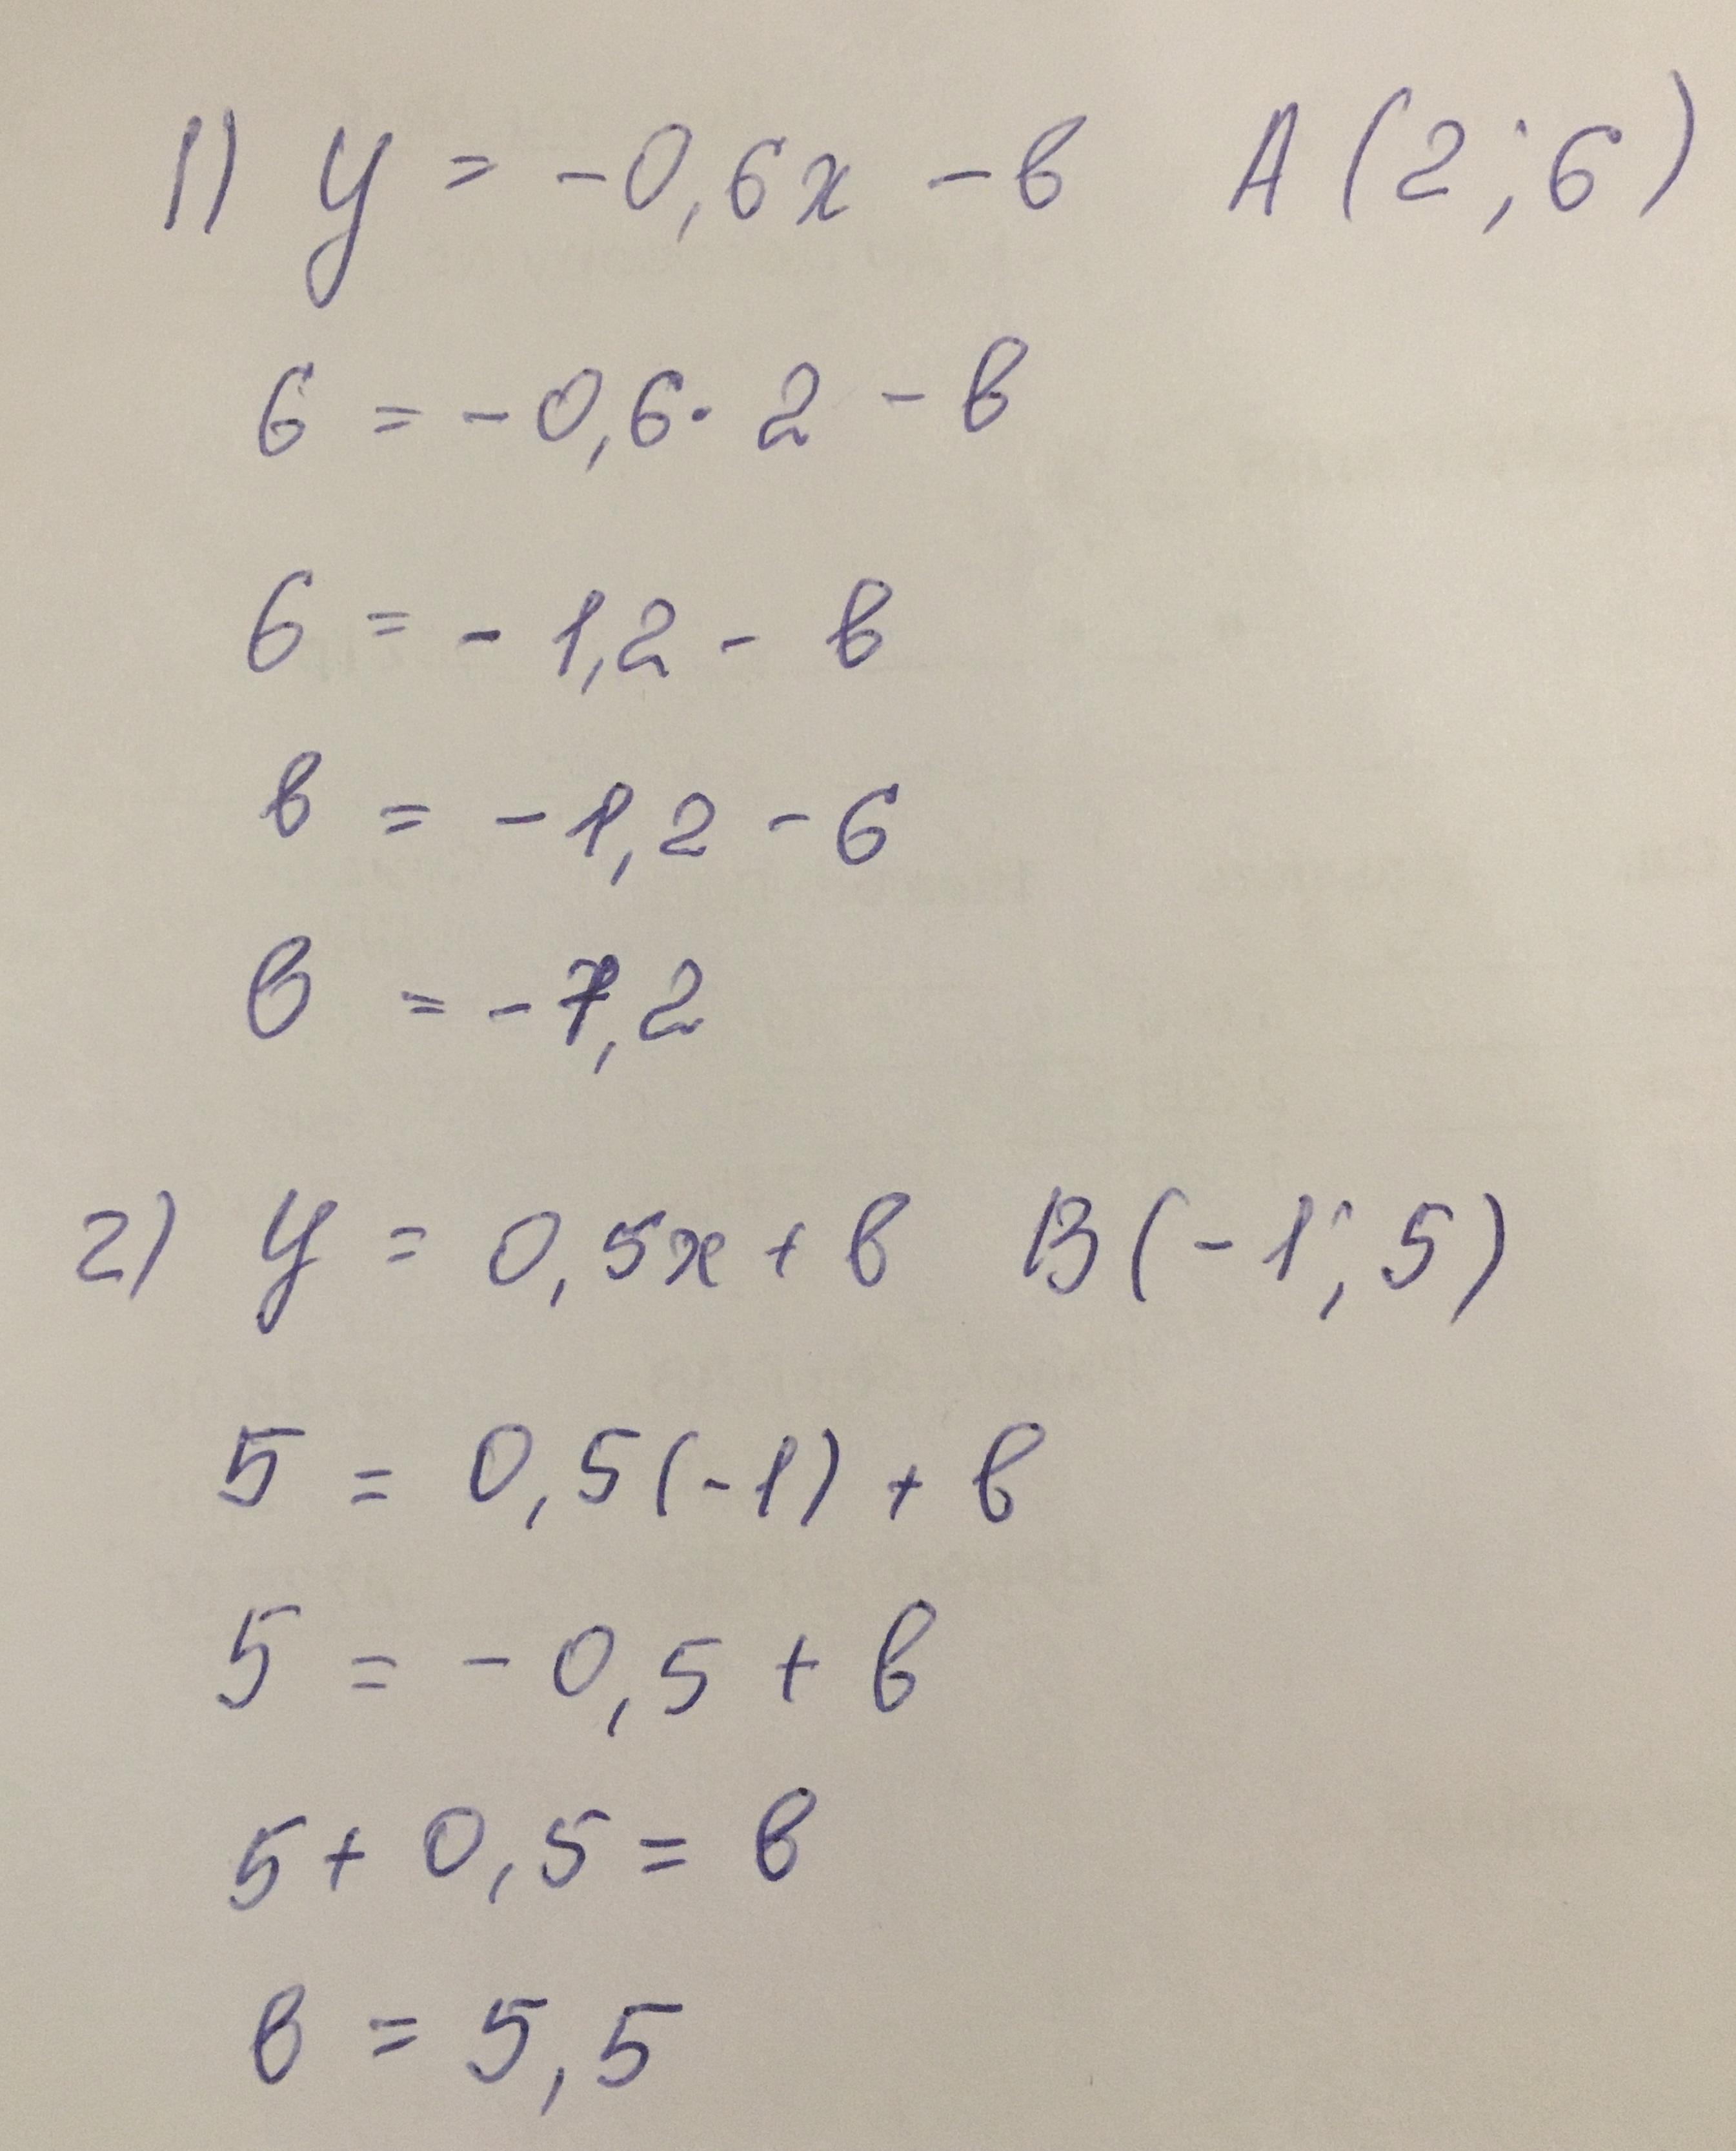 1) y = -0,6x - в A(2;6)
6 = -0,6· 2 - в
6 = - 1,2 - в
в = -1,2 - 6
в = -7,2
2) y = 0,5x + в B(-1;5)
5 = 0,5(-1) + в
5 = - 0,5 + в
5 + 0,5 = в
в = 5,5